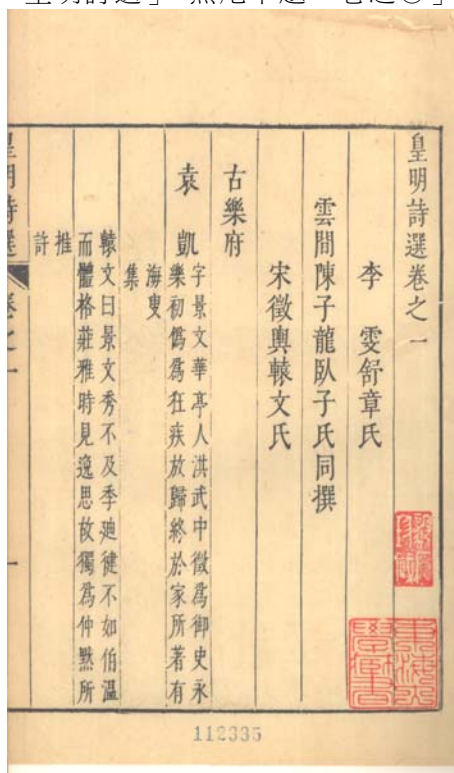 皇明詩選卷之一
李　雯舒章氏
雲間陳子龍臥子氏同撰
宋徵輿轅文氏
古樂府
袁　凱
字景文華亭人洪武中徵為御史永
樂初僞為狂疾放歸終於家所著有
海叟
集
轅文曰景文秀不及季廸健不如伯溫
而體格莊雅時見逸思故獨為仲黙所
推
許
皇明詩選
卷之一
一
112335